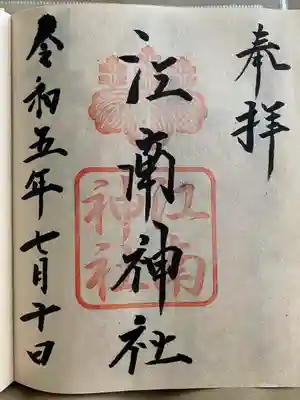 奉拝
江南神社
江南神社
令和五年七月十日